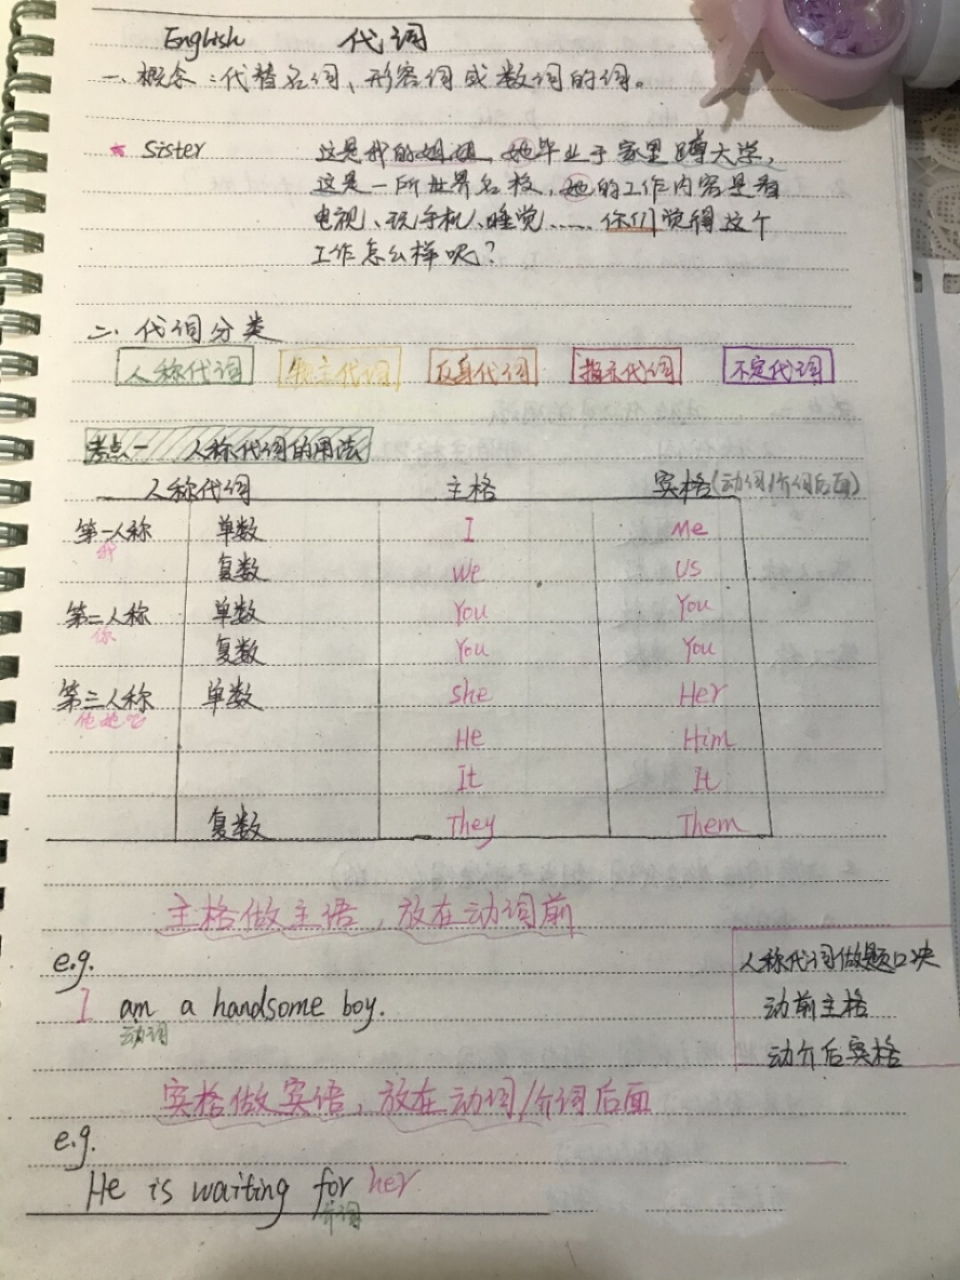 English 代词
一、概念：代替名词、形容词或数词的词。
* Sister 这是我的姐姐，她毕业于家里蹲大学，
这是一所世界名校，她的工作内容是看
电视、玩手机、睡觉…… 你们觉得这个
工作怎么样呢？
二、代词分类
人称代词 物主代词 反身代词 指示代词 不定代词
考点一 人称代词的用法
人称代词 主格 宾格(动词/介词后面)
第一人称 单数 I Me
我
复数 We US
第二人称 单数 You You
你
复数 You You
第三人称 单数 she Her
他她它
He Him
It It
复数 They Them
主格做主语，放在动词前
e.g.
I am a handsome boy.
动词
人称代词做题口决
动前主格
动介后宾格
宾格做宾语，放在动词/介词后面
e.g.
He is waiting for her
介词